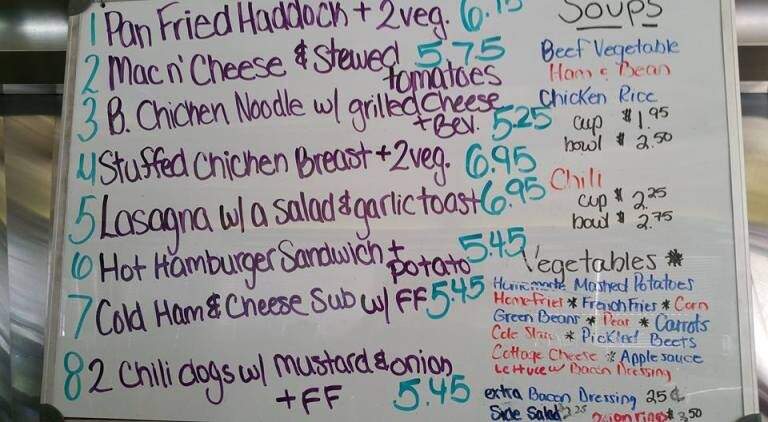 1 Pan Fried Haddock + 2 veg. 6.15
2 Mac n' Cheese & Stewed tomatoes 5.75
3 B. Chicken Noodle w/ grilled Cheese
+ Bev. 5.25
4 Stuffed Chicken Breast + 2 veg. 6.95
5 Lasagna w/ a salad & garlic toast 6.95
6 Hot Hamburger Sandwich + potato 5.45
7 Cold Ham & Cheese Sub w/ FF 5.45
8 2 Chili dogs w/ mustard & onion
+ FF 5.45
Soups
Beef Vegetable
Ham & Bean
Chicken Rice
cup $1.95
bowl $2.50
Chili
cup $2.25
bowl $2.75
Vegetables *
Homemade Mashed Potatoes
Home Fries * French Fries * Corn
Green Beans * Peas * Carrots
Cole Slaw * Pickled Beets
Cottage Cheese * Applesauce
Lettuce w Bacon Dressing
extra Bacon Dressing 25¢
Side Salad 2.25 Onion Rings $3.50